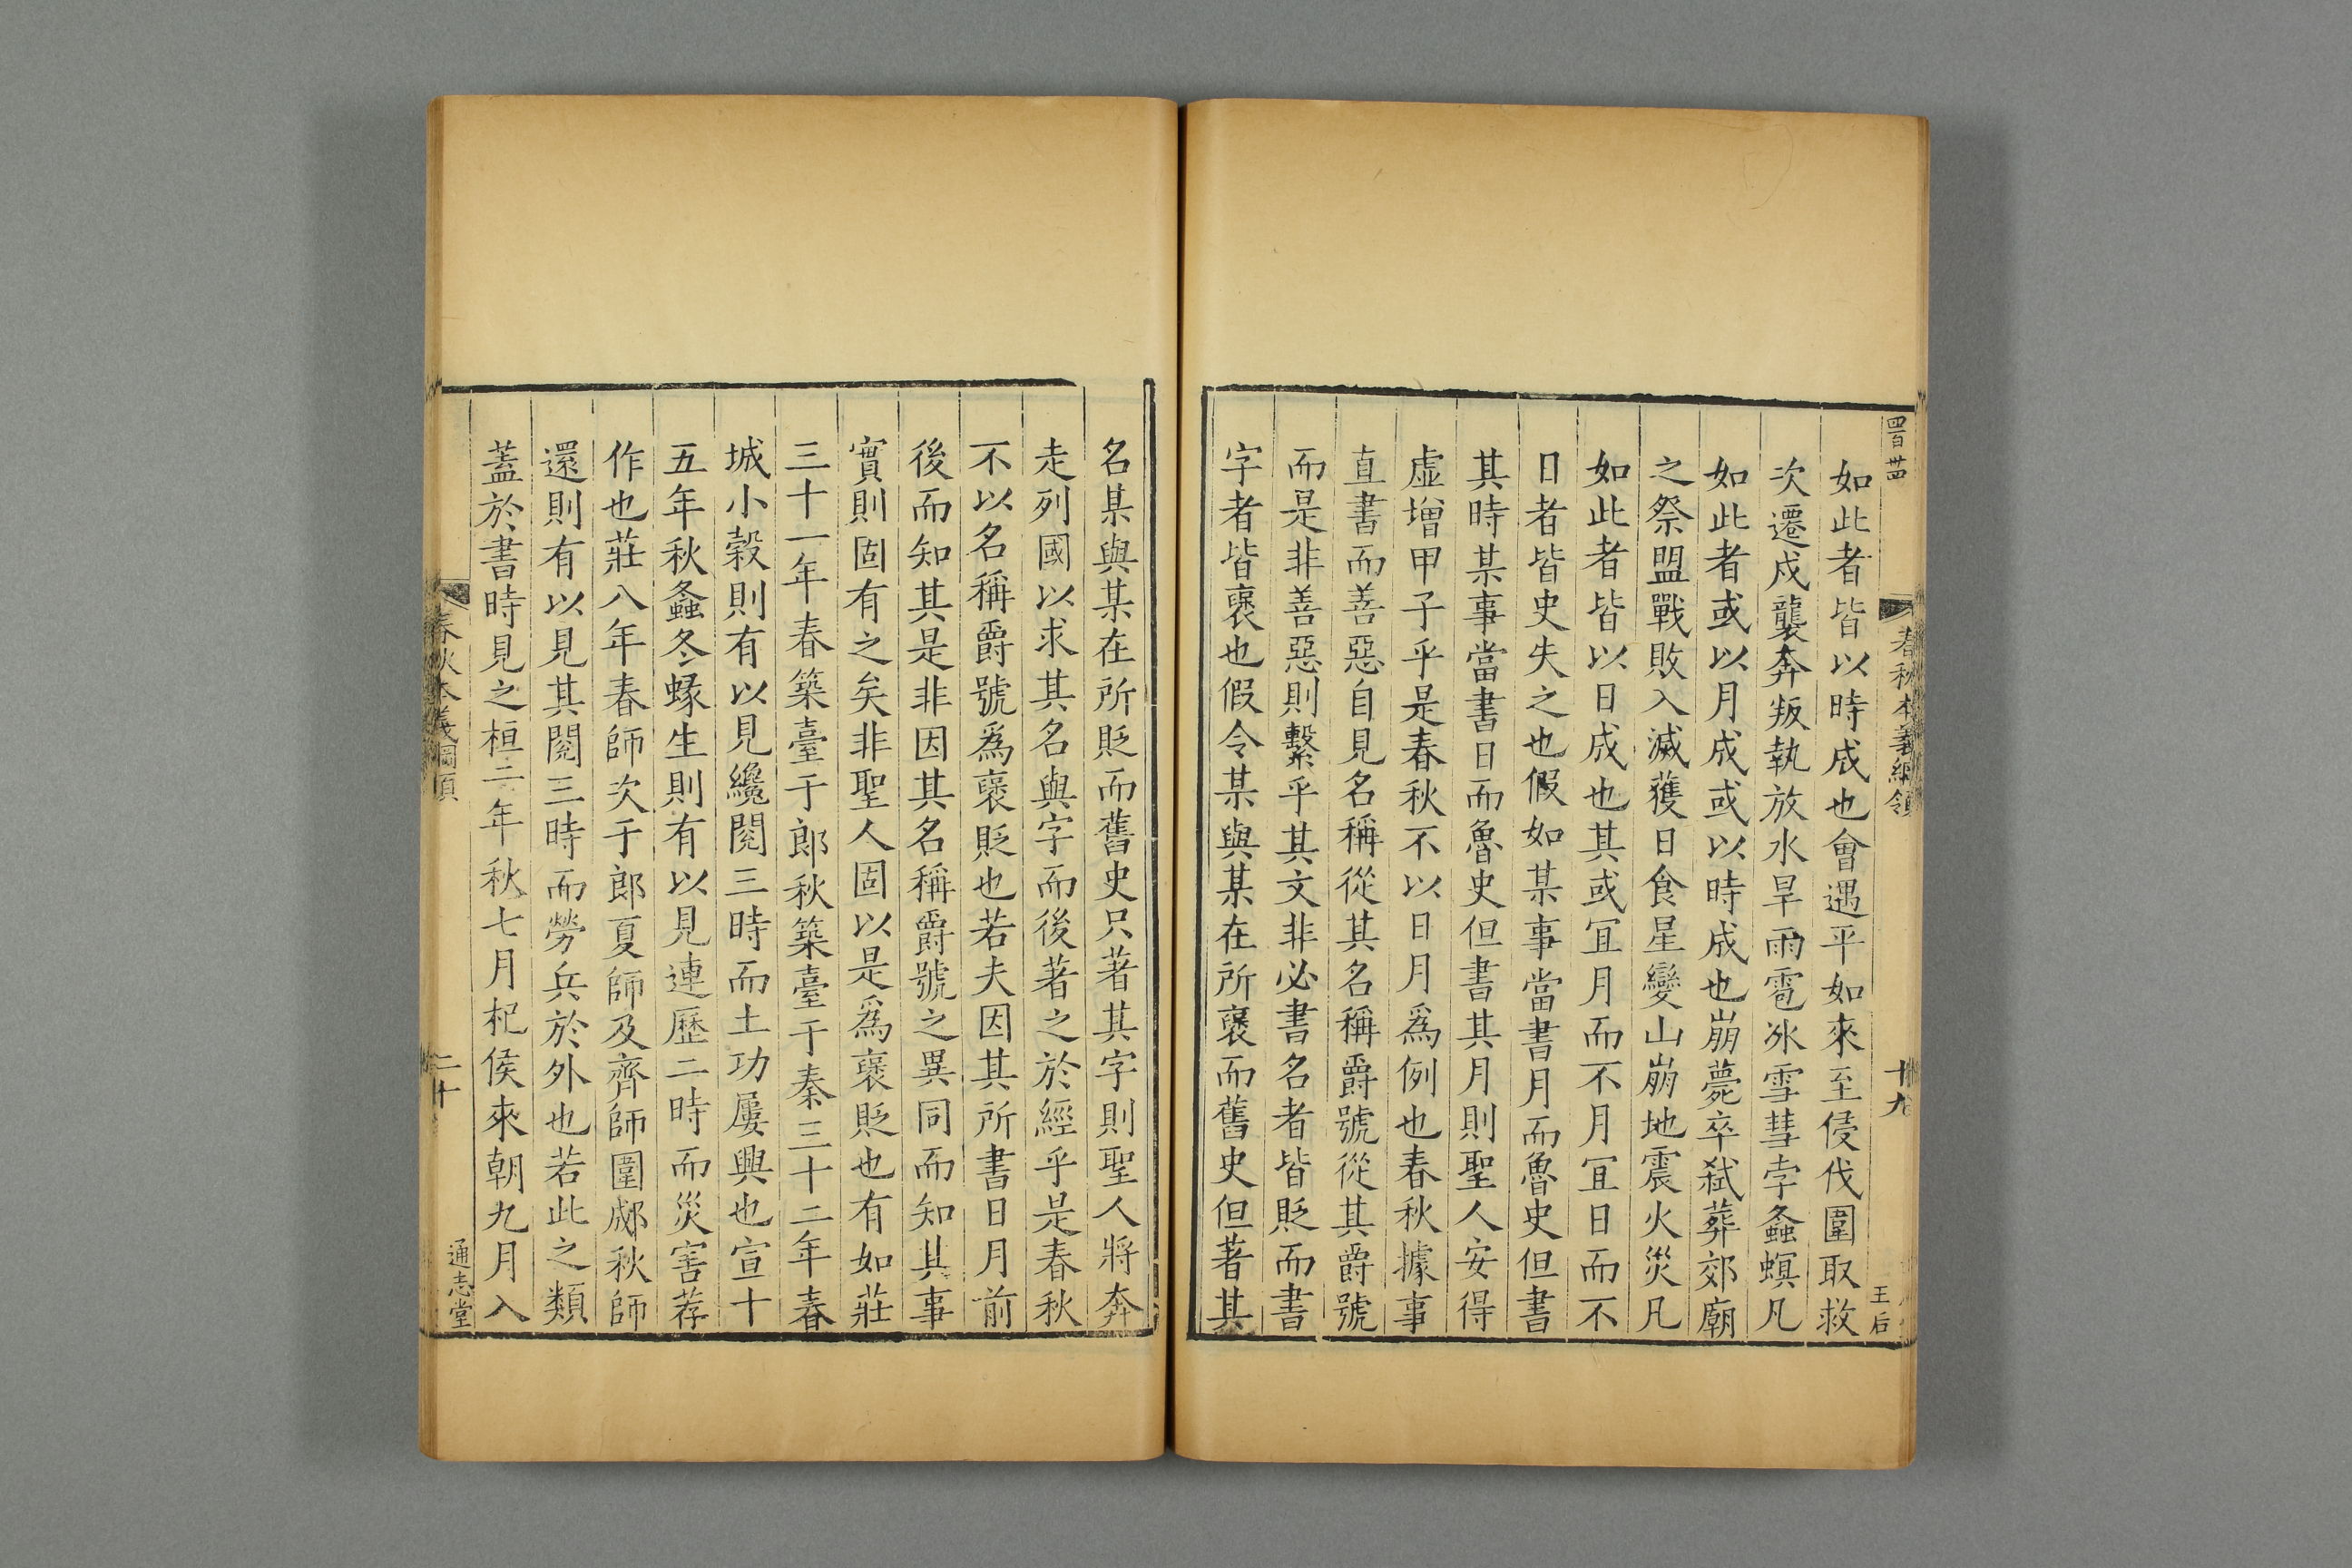 如此者皆以時成也會遇平如來至侵伐圍取救
次遷戍襲奔叛執放水旱雨雹冰雪彗孛螽螟凡
如此者或以月成或以時成也崩薨卒弑葬郊廟
之祭盟戰敗入滅獲日食星變山崩地震火災凡
如此者皆以日成也其或宜月而不月宜日而不
日者皆史失之也假如某事當書月而魯史但書
其時某事當書日而魯史但書其月則聖人安得
虛增甲子乎是春秋不以日月爲例也春秋據事
直書而善惡自見名稱從其名稱爵號從其爵號
而是非善惡則繫乎其文非必書名者皆貶而書
字者皆襃也假令某與某在所襃而舊史但著其
春秋本義綱領
十九
王后
名某與某在所貶而舊史只著其字則聖人將奔
走列國以求其名與字而後著之於經乎是春秋
不以名稱爵號爲襃貶也若夫因其所書日月前
後而知其是非因其名稱爵號之異同而知其事
實則固有之矣非聖人固以是爲襃貶也有如莊
三十一年春築臺于郎秋築臺于秦三十二年春
城小穀則有以見纔閱三時而土功屢興也宣十
五年秋螽冬蝝生則有以見連歷二時而災害荐
作也莊八年春師次于郎夏師及齊師圍郕秋師
還則有以見其閱三時而勞兵於外也若此之類
蓋於書時見之桓二年秋七月杞侯來朝九月入
春秋本義綱領
二十
通志堂